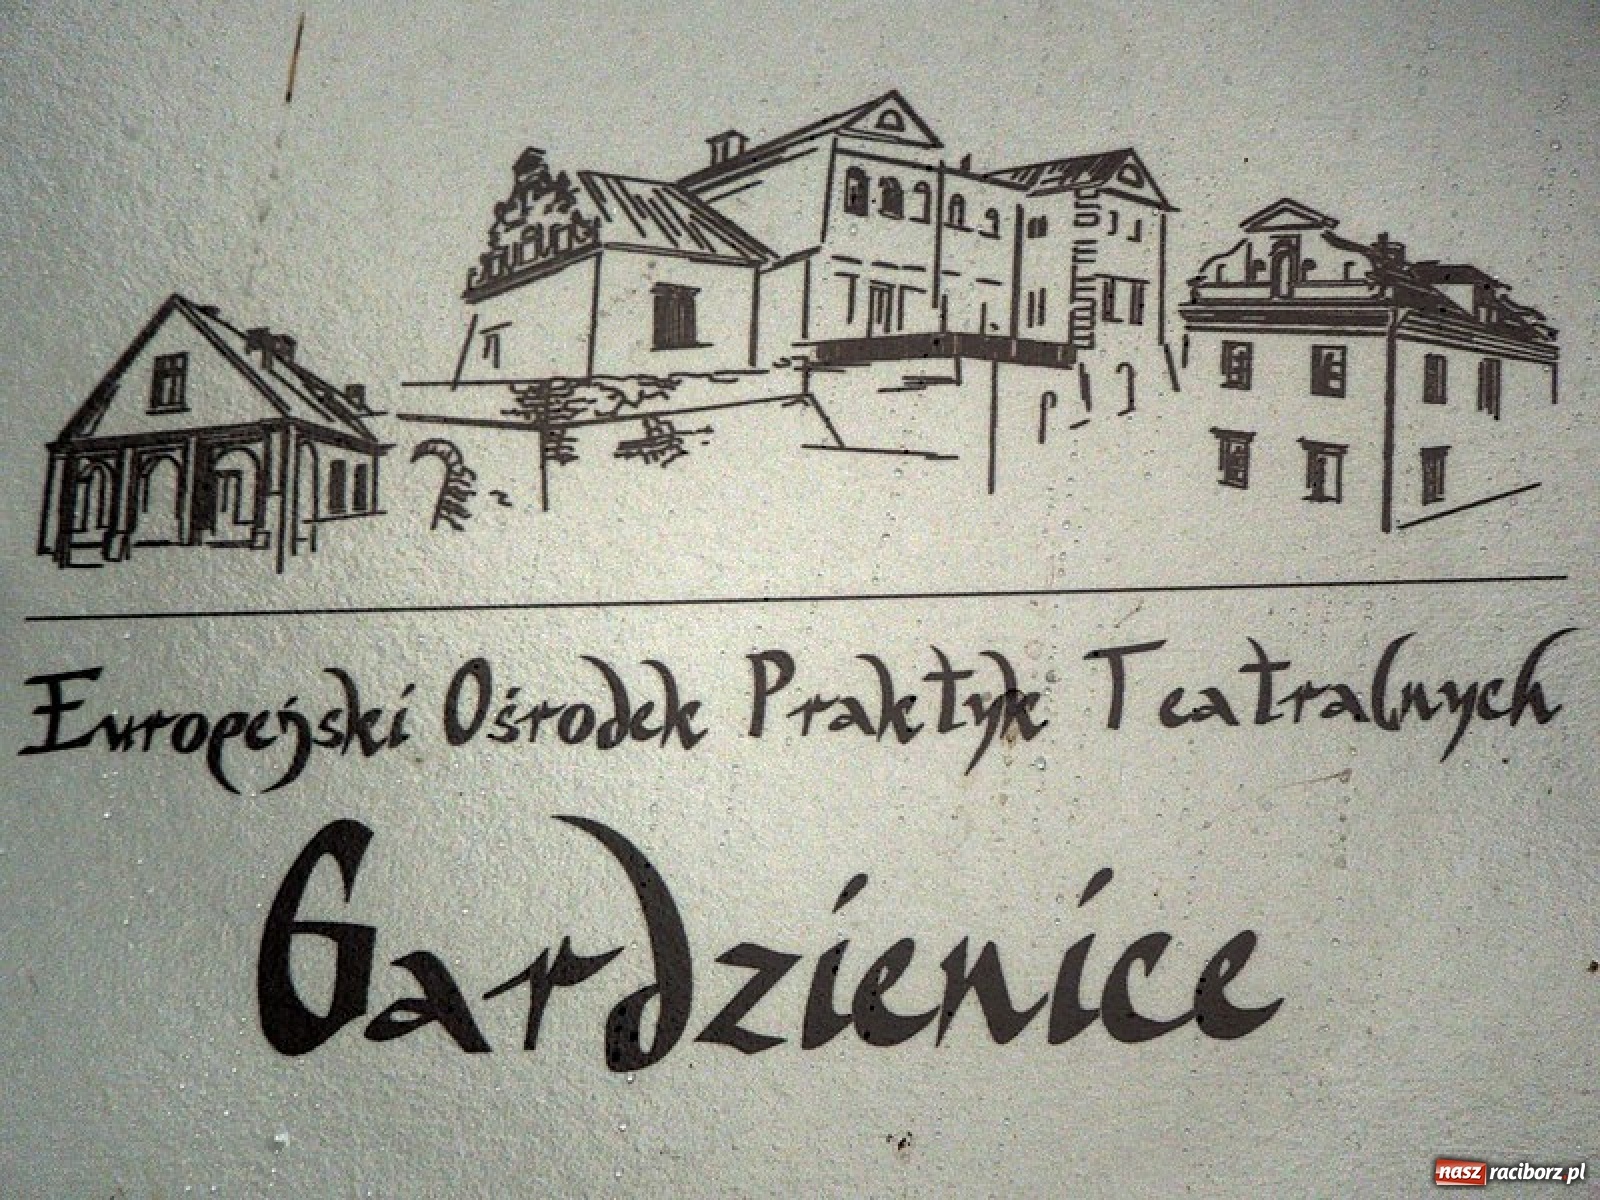 Europejski Ośrodek Praktyk Teatralnych
Gardzienice
nasz raciborz.pl